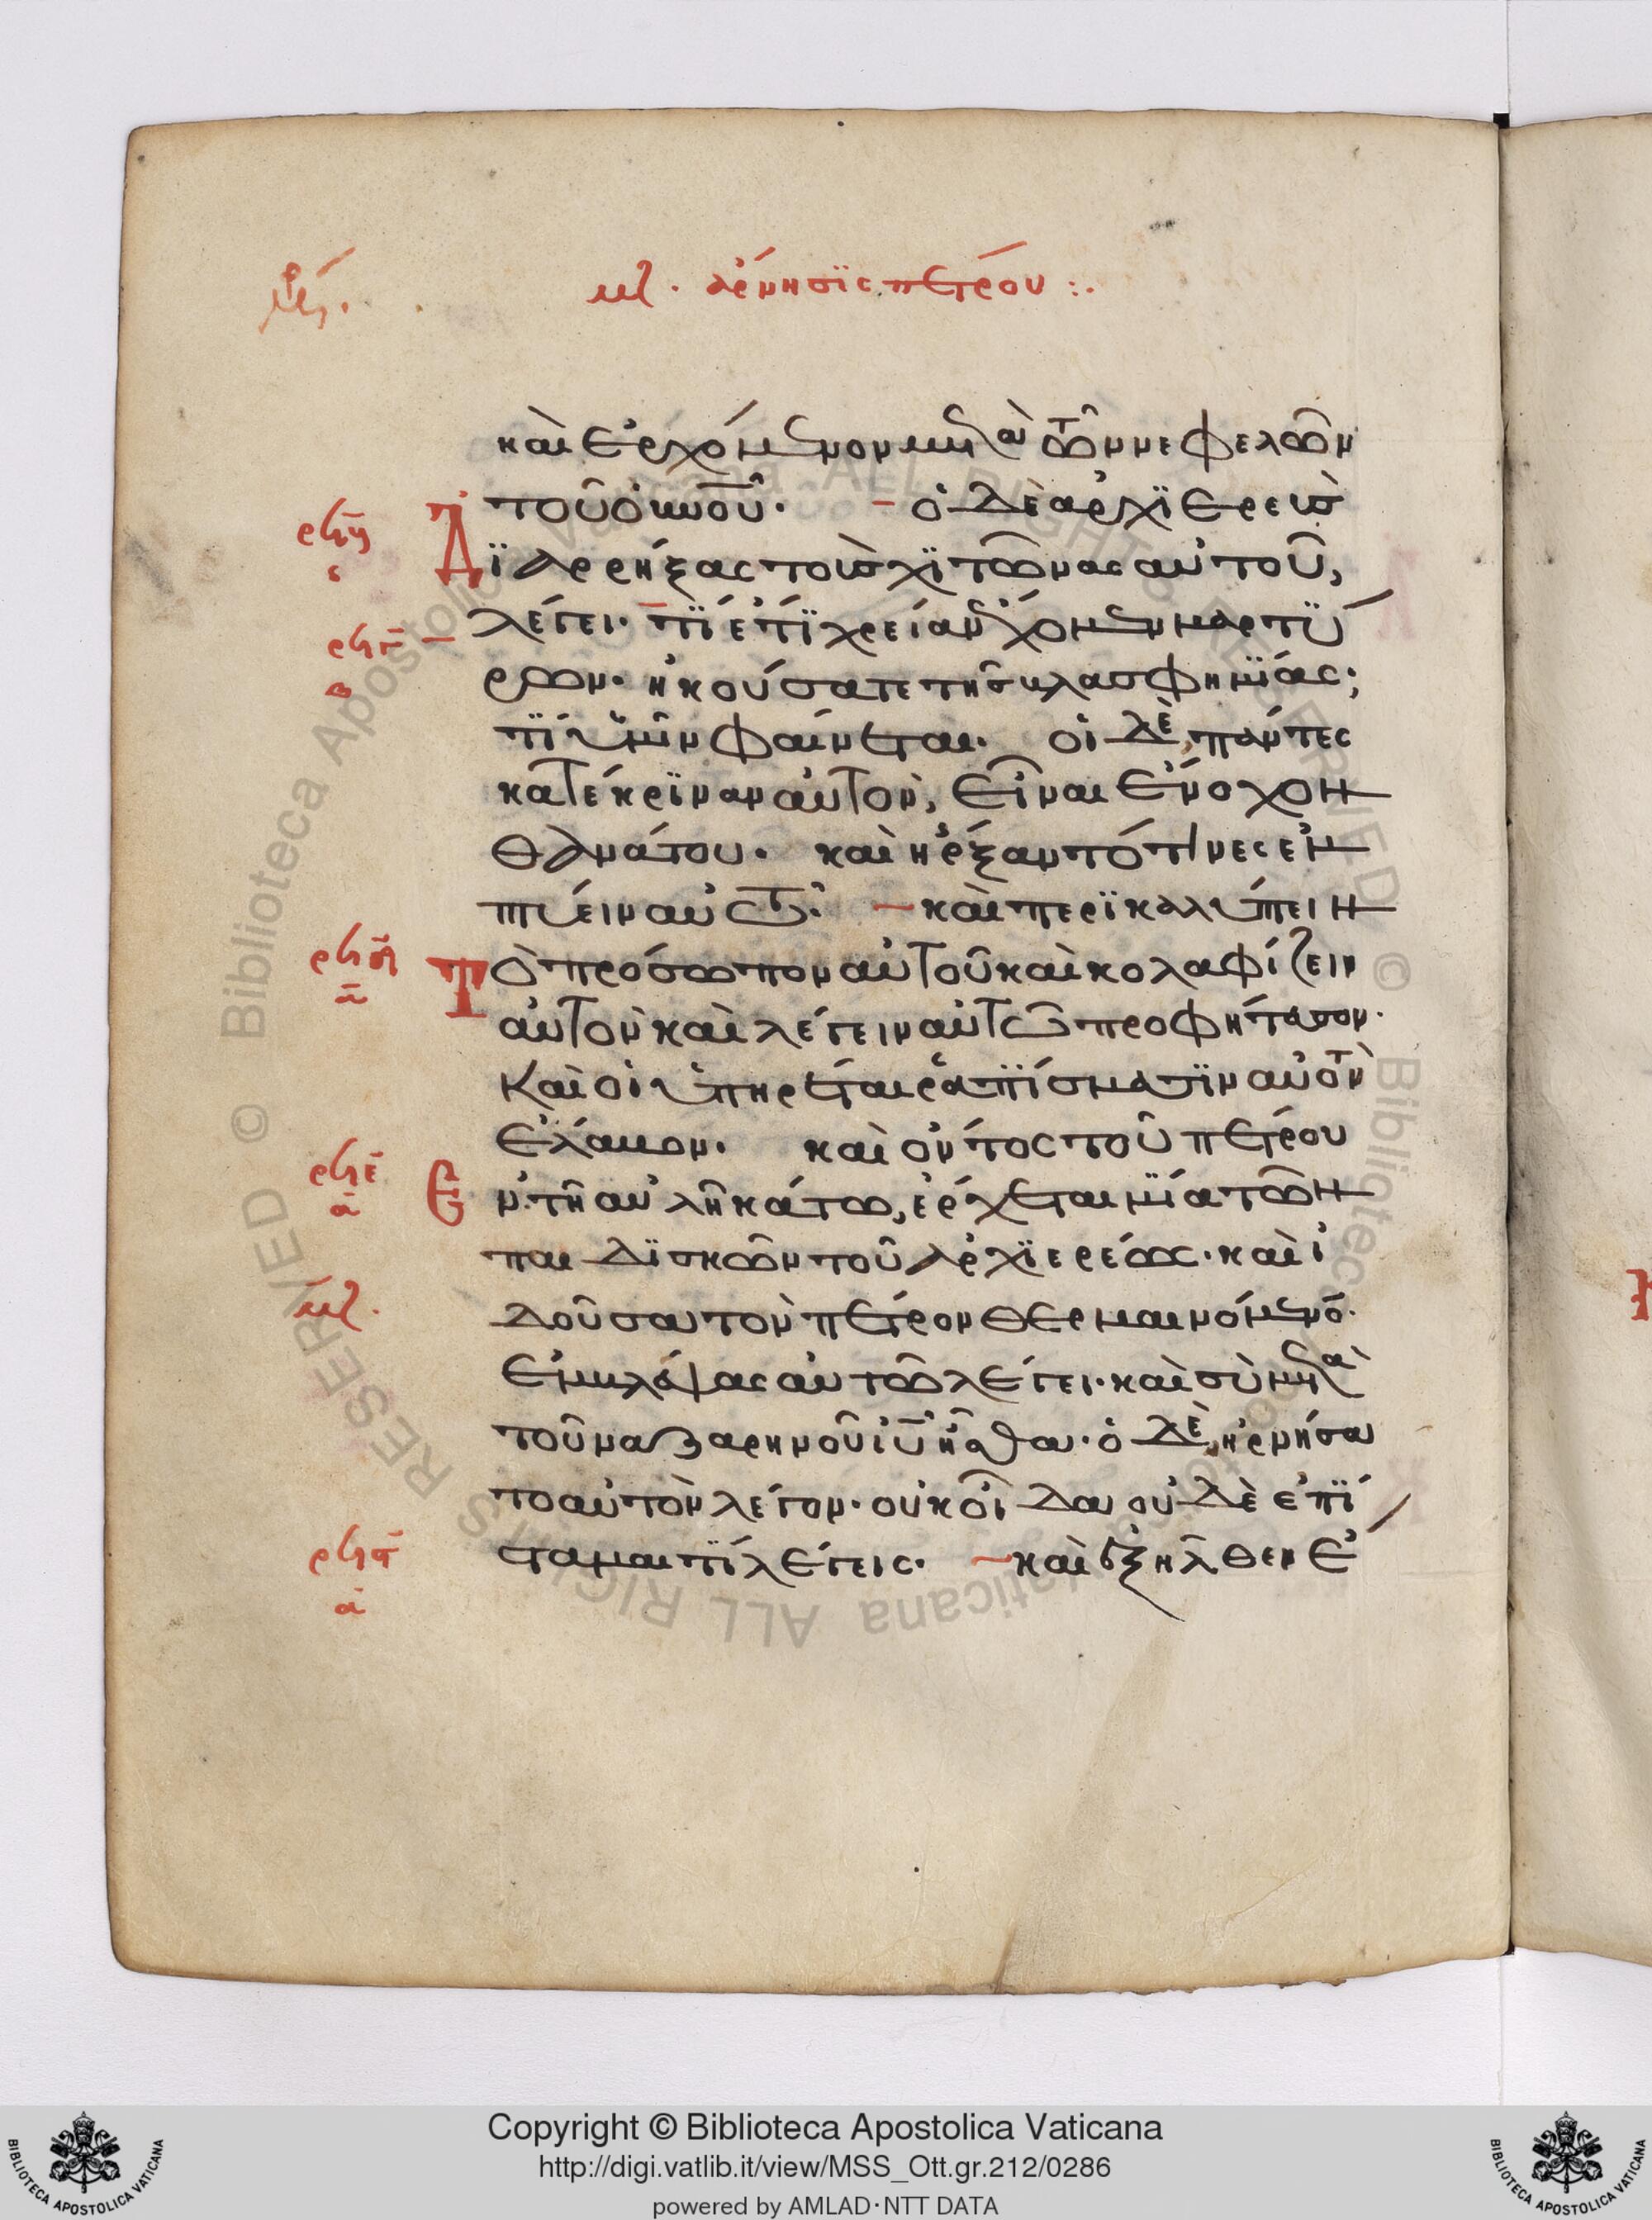 μζ. ἄρνησϊς πέτρου :.
καὶ ἐρχόμενον μετὰ τῶν νεφελῶν
τοῦ οὐνοῦ. - ὁ δὲ ἀρχϊερεὺς
ρϟγ
Δϊαρρήξας τοὺς χϊτῶνας αὐτοῦ,
λέγει. τΐ ἔτϊ χρείαν ἔχομεν μαρτΰ
ρϟγ
ρων. ἠκούσατε τῆς βλασφημΐας;
τΐ ὑμῖν φαίνεται. οἱ δὲ πάντες
κατέκρϊναν αὐτὸν, εἶναι ἔνοχον
θανάτου. καὶ ἤρξαντό τινες ἐμ
πτύειν αὐτῶ. - καὶ περϊκαλύπτειν
ρϟδ
ᾱ
Τὸ πρόσωπον αὐτοῦ καὶ κολαφίζειν
αὐτὸν καὶ λέγειν αὐτῶ προφήτευσον.
Καὶ οἱ ὑπηρέται ῥαπΐσμασϊν αὐτὸν
ἔλαβον. καὶ ὄντος τοῦ πέτρου
ρϟε
α
Εν τῆ αὐλῆ κάτω, ἔρχεται μΐα τῶν
παιδϊσκῶν τοῦ ἀρχϊερέως. καὶ ἰ
μζ.
δοῦσα τὸν πέτρον θερμαινόμενον.
ἐμβλέψασα αὐτῶ λέγει. καὶ σὺ μετὰ
τοῦ ναζαρηνοῦ ἰῦ ἦσθα. ὁ δὲ ἠρνήσα
το αὐτὸν λέγον. οὐκ οἶδα οὐδὲ ἐπΐ
σταμαι τΐ λέγεις. - καὶ ἐξῆλθεν ἔ
ρϟς
α
Copyright © Biblioteca Apostolica Vaticana
http://digi.vatlib.it/view/MSS_Ott.gr.212/0286
powered by AMLAD·NTT DATA
BIBLIOTECA APOSTOLICA VATICANA
BIBLIOTECA APOSTOLICA VATICANA